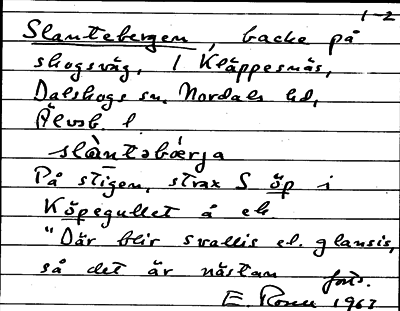 1-2
Slantebergen, backe på
skogsväg, i Kläppesnäs,
Dalskogs sn. Nordals hd,
Älvsb. l
slàntəbærja
På stigen, strax S öp i
Köpegullet å ek
"Där blir svallis el. glansis,
så det är nästan forts.
E. Rosell 1963